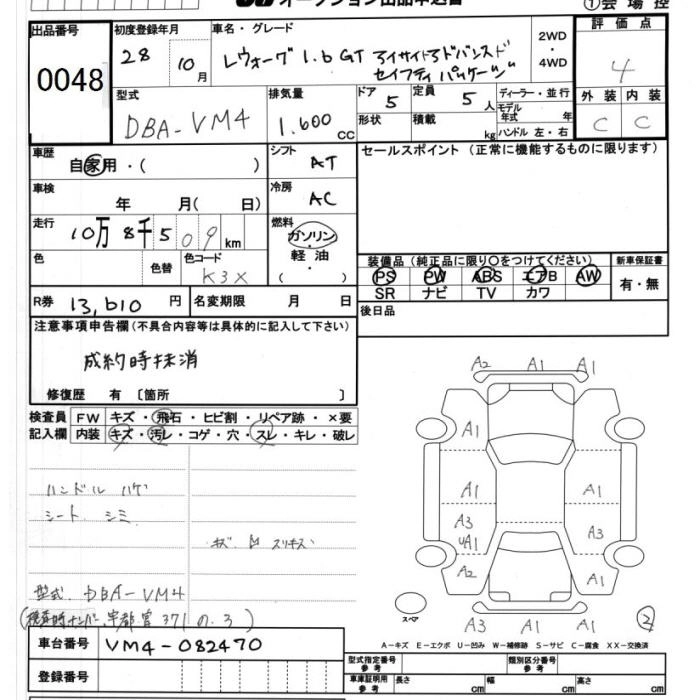 オークション出品申込書
①会場控
出品番号
0048
初度登録年月
28 10月
車名・グレード
レヴォーグ 1.6GT アイサイトアドバンスド
セイフティ パッケージ
2WD
・
4WD
評価点
4
型式
DBA-VM4
排気量
1.600 cc
ドア
5
定員
5人
形状
積載 kg
ディーラー・並行
モデル
年式 年
ハンドル 左・右
外装 内装
C C
車歴
自家用・( )
シフト
AT
セールスポイント (正常に機能するものに限ります)
車検
年 月( 日)
冷房
AC
走行
10万8千509km
燃料
ガソリン
・
軽油
・
( )
色
色替
色コード
K3X
装備品(純正品に限り○をつけてください)
新車保証書
PS PW ABS エアB AW
SR ナビ TV カワ
有・無
R券 13,610円
名変期限 月 日
後日品
注意事項申告欄(不具合内容等は具体的に記入して下さい)
成約時抹消
修復歴 有〔箇所 〕
検査員
記入欄
FW キズ・飛石・ヒビ割・リペア跡・×要
内装 キズ・汚レ・コゲ・穴・スレ・キレ・破レ
ハンドル ハゲ
シート シミ
キズ スリキズ
型式 DBA-VM4
(検査時ナンバー 宇都宮 371 の 3)
A2 A1 A1
A1
A1 A1
A3 A3
UA1
A2 A1
A3 A1 A1
スペア
②
A-キズ E-エクボ U-凹み W-補修跡 S-サビ C-腐食 XX-交換済
車台番号
VM4-082470
登録番号
型式指定番号
参考
類別区分番号
参考
車庫証明用
参考
長さ cm
幅 cm
高さ cm